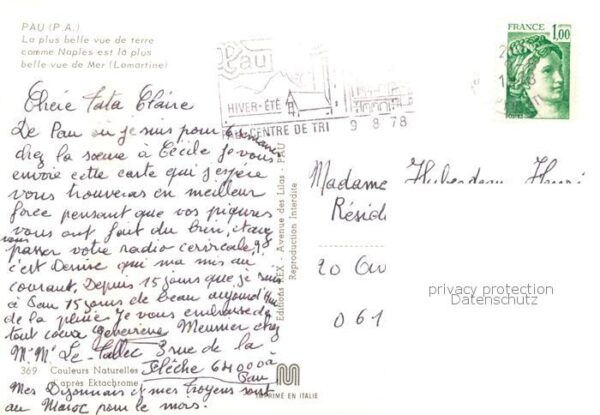 PAU (P.A.)
La plus belle vue de terre
comme Naples est la plus
belle vue de Mer (Lamartine)
FRANCE
1,00
Pau
HIVER-ÉTÉ
PAU CENTRE DE TRI
9 8 78
Chère Tata Claire
De Pau où je suis pour
chez la sœur à Cécile je vous
envoie cette carte qui j'espère
vous trouveras en meilleur
force pensant que vos piqures
vous ont fait du bien, et
passer votre radio cervicale,
c'est Denise qui ma mis au
courant. Depuis 15 jours que je suis
à Pau 15 jours de beau aujourd'hui
de la pluie. Je vous embrasse de
tout cœur Geneviève Meunier chez
Mr Me Le Tallec 3 rue de la
Flèche 64000 à
Pau
Mes Dijonnais et mes troyens sont
au Maroc pour le mois.
369 Couleurs Naturelles
d'après Ektachrome
Editions REX - Avenue des Lilas - PAU
Reproduction Interdite
IMPRIMÉ EN ITALIE
Madame
Résid
20
061
privacy protection
Datenschutz